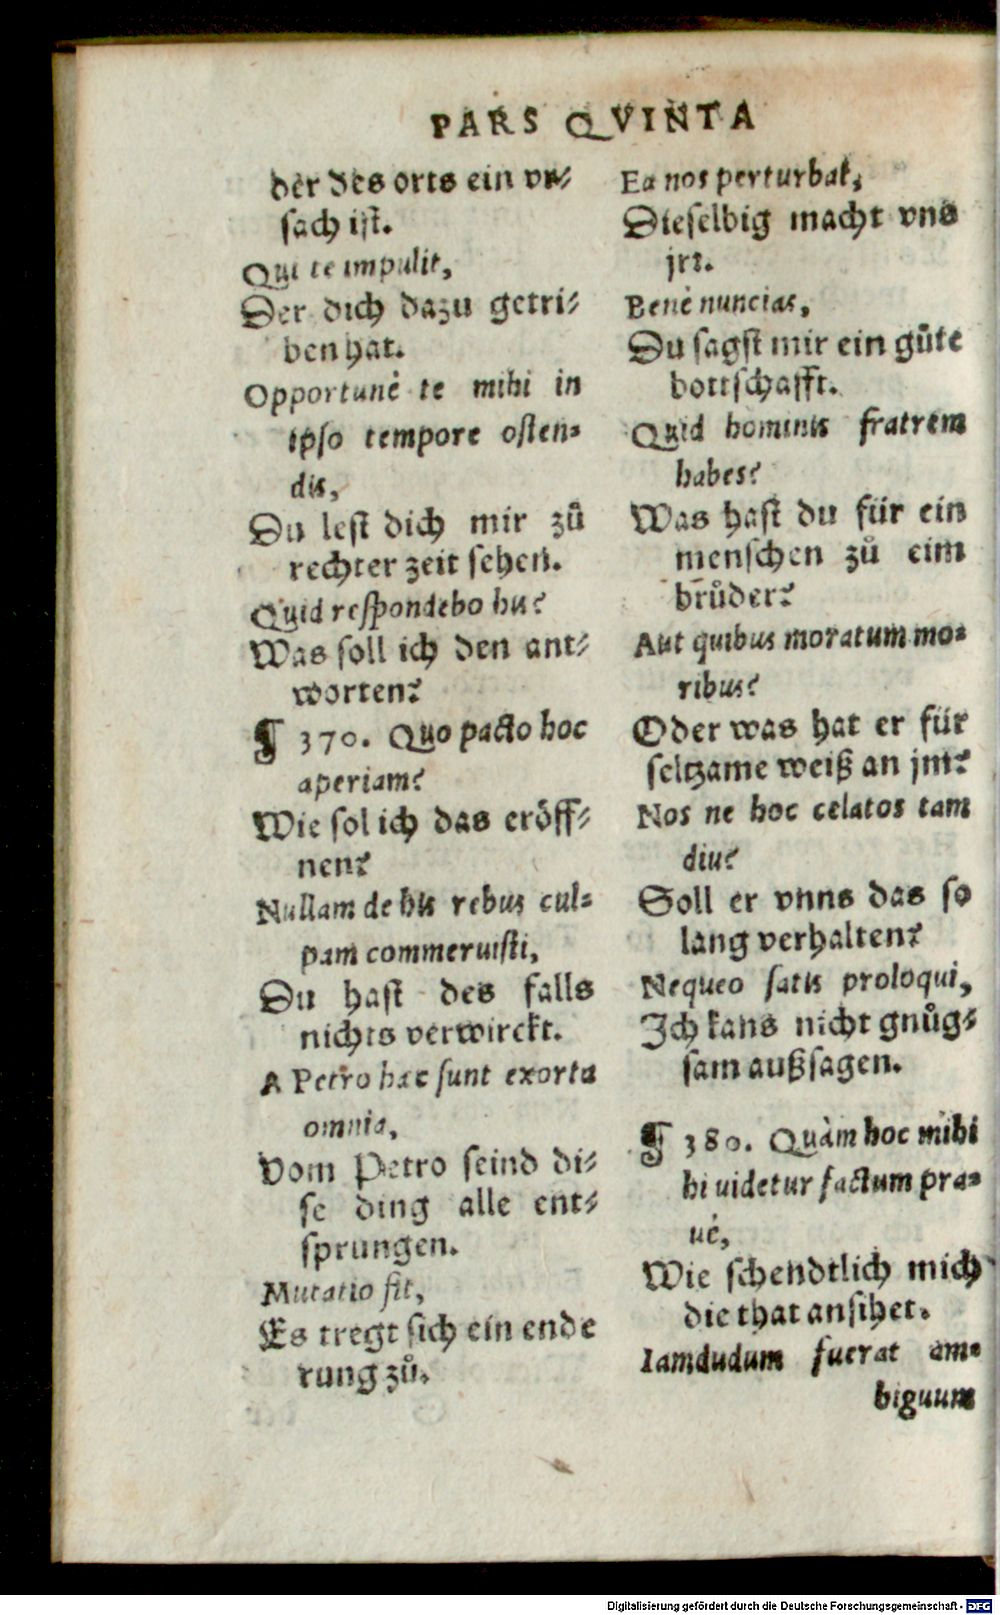 PARS QVINTA
der des orts ein vr⸗
sach ist.
Qui te impulit,
Der dich dazu getri⸗
ben hat.
Opportunè te mihi in
ipso tempore osten⸗
dis,
Du lest dich mir zů
rechter zeit sehen.
Quid respondebo his?
Was soll ich den ant⸗
worten?
¶ 370. Quo pacto hoc
aperiam?
Wie sol ich das eröff⸗
nen?
Nullam de his rebus cul⸗
pam commeruisti,
Du hast des falls
nichts verwirckt.
A Petro hæc sunt exorta
omnia,
Vom Petro seind di⸗
se ding alle ent⸗
sprungen.
Mutatio fit,
Es tregt sich ein ende
rung zů.
Ea nos perturbat,
Dieselbig macht vns
jrr.
Benè nuncias,
Du sagst mir ein gůte
bottschafft.
Quid hominis fratrem
habes?
Was hast du für ein
menschen zů eim
brůder?
Aut quibus moratum mo⸗
ribus?
Oder was hat er für
seltzame weiß an jm?
Nos ne hoc celatos tam
diu?
Soll er vnns das so
lang verhalten?
Nequeo satis proloqui,
Ich kans nicht gnůg⸗
sam außsagen.
¶ 380. Quàm hoc mihi
hi uidetur factum pra⸗
uè,
Wie schendtlich mich
die that ansihet.
Iamdudum fuerat am⸗
biguum
Digitalisierung gefördert durch die Deutsche Forschungsgemeinschaft - DFG